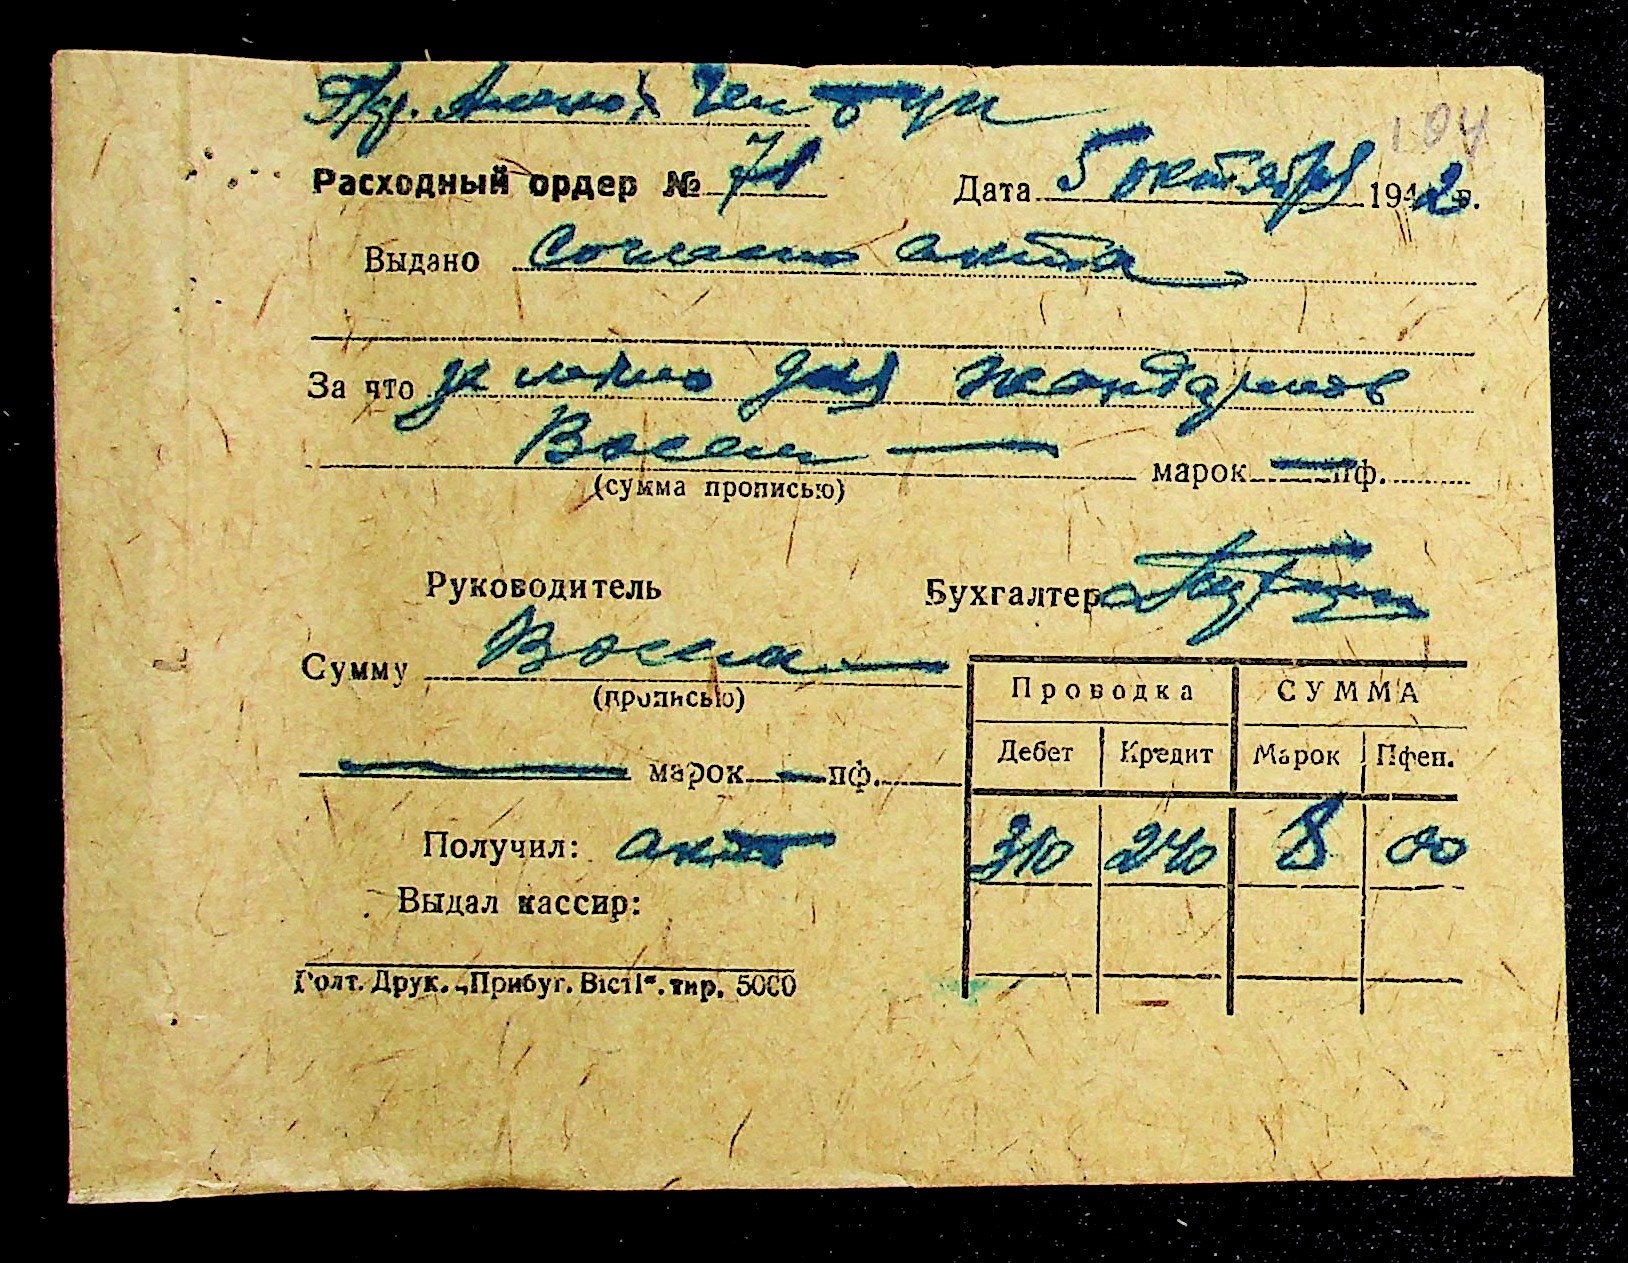 104
Расходный ордер № 71 Дата 5 октября 1942 г.
Выдано Согласно акта
За что за масло для жандармов
Восем —
марок — пф.
(сумма прописью)
Руководитель Бухгалтер
Сумму Восем —
(прописью)
— марок — пф.
Проводка СУММА
Дебет Кредит Марок Пфен.
310 240 8 00
Получил: акт
Выдал кассир:
Голт. Друк. „Прибуг. Вісті“. тир. 5000